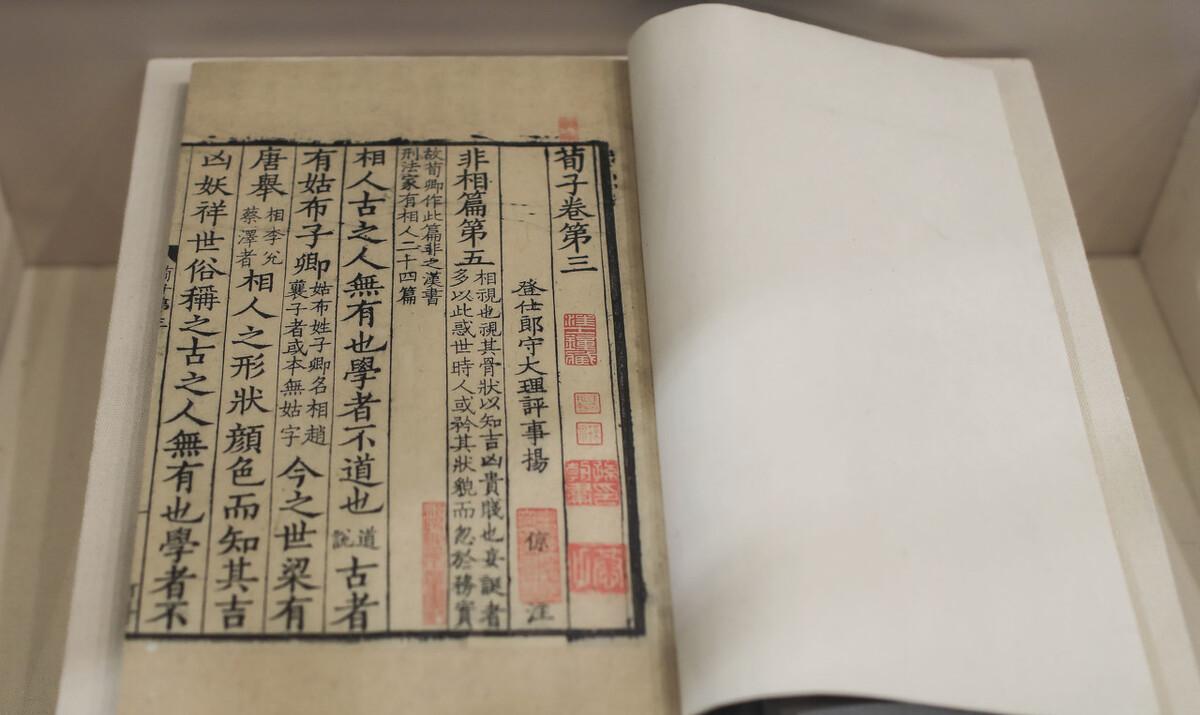 荀子卷第三
登仕郎守大理評事揚倞注
非相篇第五相視也視其骨狀以知吉凶貴賤也妄誕者多以此惑世時人或矜其狀貌而忽於務實
故荀卿作此篇非之漢書刑法家有相人二十四篇
相人古之人無有也學者不道也道説古者
有姑布子卿姑布姓子卿名相趙襄子者或本無姑字今之世梁有
唐舉相李兊蔡澤者相人之形狀顔色而知其吉
凶妖祥世俗稱之古之人無有也學者不